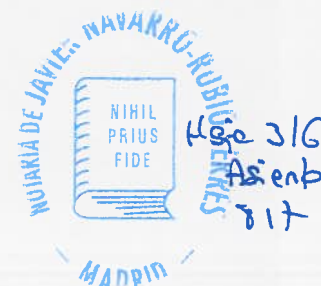 NOTARIA DE JAVIER NAVARRO-RUBIO SERRES
NIHIL
PRIUS
FIDE
MADRID
Hoja 316
Asiento
817